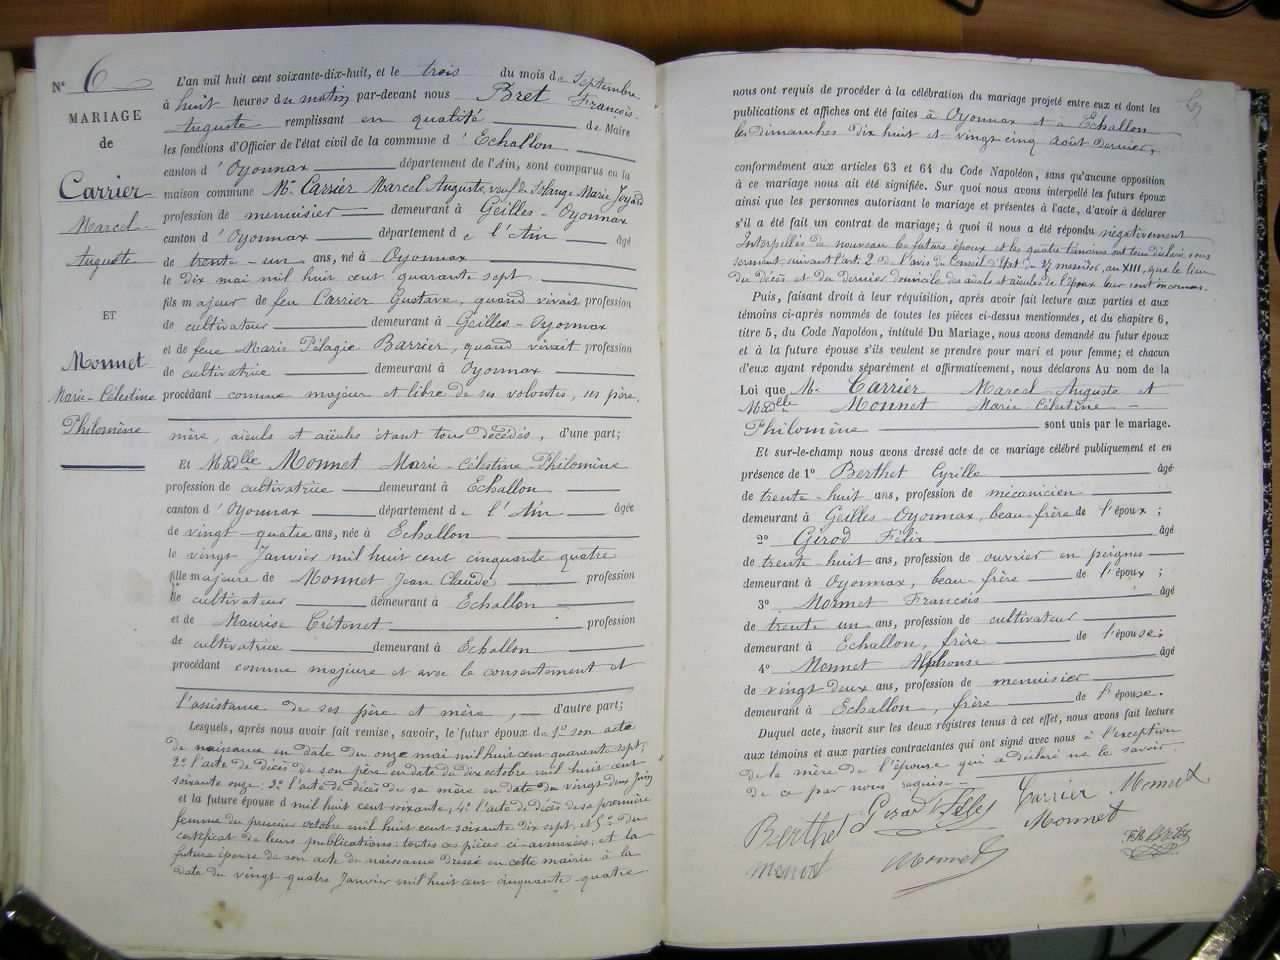 N° 6
MARIAGE
de
Carrier
Marcel
Auguste
ET
Monnet
Marie-Célestine
Philomène
L'an mil huit cent soixante-dix-huit, et le trois du mois de Septembre
à huit heures du matin par-devant nous Bret François-
Auguste remplissant en qualité de Maire
les fonctions d'Officier de l'état civil de la commune d'Echallon
canton d'Oyonnax département de l'Ain, sont comparus en la
maison commune Mr. Carrier Marcel Auguste, veuf de Solange Marie Joyard
profession de menuisier demeurant à Geilles-Oyonnax
canton d'Oyonnax département de l'Ain âgé
de trente-un ans, né à Oyonnax
le dix mai mil huit cent quarante sept
fils majeur de feu Carrier Gustave, quand vivait profession
de cultivateur demeurant à Geilles-Oyonnax
et de feue Marie Pélagie Barrier, quand vivait profession
de cultivatrice demeurant à Oyonnax
procédant comme majeur et libre de ses volontés, ses père,
mère, aïeuls et aïeules étant tous décédés, d'une part;
Et Madlle Monnet Marie-Célestine-Philomène
profession de cultivatrice demeurant à Echallon
canton d'Oyonnax département de l'Ain âgée
de vingt-quatre ans, née à Echallon
le vingt Janvier mil huit cent cinquante quatre
fille majeure de Monnet Jean Claude profession
de cultivateur demeurant à Echallon
et de Maurise Crétenet profession
de cultivatrice demeurant à Echallon
procédant comme majeure et avec le consentement et
l'assistance de ses père et mère, d'autre part;
Lesquels, après nous avoir fait remise, savoir, le futur époux de 1° son acte
de naissance en date du onze mai mil huit cent quarante sept;
2° l'acte de décès de son père en date du dix octobre mil huit cent
soixante onze; 3° l'acte de décès de sa mère en date du vingt-deux Juin
et la future épouse d mil huit cent soixante; 4° l'acte de décès de sa première
femme du premier octobre mil huit cent soixante dix sept, et 5° du
certificat de leurs publications: toutes ces pièces ci-annexées; et la
future épouse de son acte de naissance dressé en cette mairie à la
date du vingt-quatre Janvier mil huit cent cinquante-quatre.
nous ont requis de procéder à la célébration du mariage projeté entre eux et dont les
publications et affiches ont été faites à Oyonnax et à Echallon
les dimanches dix huit et vingt-cinq Août dernier,
conformément aux articles 63 et 64 du Code Napoléon, sans qu'aucune opposition
à ce mariage nous ait été signifiée. Sur quoi nous avons interpellé les futurs époux
ainsi que les personnes autorisant le mariage et présentes à l'acte, d'avoir à déclarer
s'il a été fait un contrat de mariage; à quoi il nous a été répondu négativement
Interpellés de nouveau les futurs époux et les quatre témoins ont tous déclaré sous
serment, suivant l'art. 2 de l'avis du Conseil d'Etat, messidor, an XIII, que le lieu
du décès et du dernier domicile des aïeuls et aïeules de l'époux leur sont inconnus.
Puis, faisant droit à leur réquisition, après avoir fait lecture aux parties et aux
témoins ci-après nommés de toutes les pièces ci-dessus mentionnées, et du chapitre 6,
titre 5, du Code Napoléon, intitulé Du Mariage, nous avons demandé au futur époux
et à la future épouse s'ils veulent se prendre pour mari et pour femme; et chacun
d'eux ayant répondu séparément et affirmativement, nous déclarons Au nom de la
Loi que Mr. Carrier Marcel-Auguste et
Madlle Monnet Marie-Célestine-
Philomène sont unis par le mariage.
Et sur-le-champ nous avons dressé acte de ce mariage célébré publiquement et en
présence de 1° Berthet Cyrille âgé
de trente-huit ans, profession de mécanicien
demeurant à Geilles-Oyonnax, beau-frère de l'époux;
2° Gérod Félix âgé
de trente-huit ans, profession de ouvrier en peignes
demeurant à Oyonnax, beau-frère de l'époux;
3° Monnet François âgé
de trente un ans, profession de cultivateur
demeurant à Echallon, frère de l'épouse;
4° Monnet Alphonse âgé
de vingt-deux ans, profession de menuisier
demeurant à Echallon, frère de l'épouse.
Duquel acte, inscrit sur les deux registres tenus à cet effet, nous avons fait lecture
aux témoins et aux parties contractantes qui ont signé avec nous à l'exception
de la mère de l'épouse qui a déclaré ne le savoir
de ce par nous requise.
Carrier Monnet
Berthet Gérod Félix Monnet
Monnet Monnet